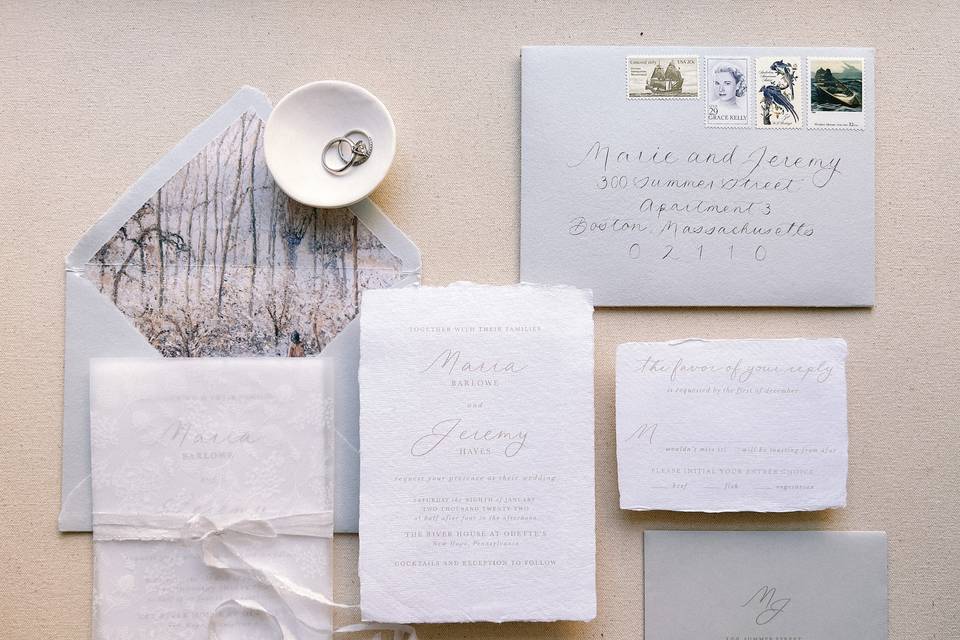 USA 20c
29
GRACE KELLY
32
Marie and Jeremy
300 Summer Street
Apartment 3
Boston, Massachusetts
0 2 1 1 0
TOGETHER WITH THEIR FAMILIES
Maria
BARLOWE
and
Jeremy
HAYES
request your presence at their wedding
SATURDAY the EIGHTH of JANUARY
TWO THOUSAND TWENTY-TWO
at half after four in the afternoon
THE RIVER HOUSE AT ODETTE'S
New Hope, Pennsylvania
COCKTAILS AND RECEPTION TO FOLLOW
Maria
BARLOWE
the favor of your reply
is requested by the first of december
M
wouldn't miss it! will be toasting from afar
PLEASE INITIAL YOUR ENTREE CHOICE
beef fish vegetarian
MJ
SUMMER STREET